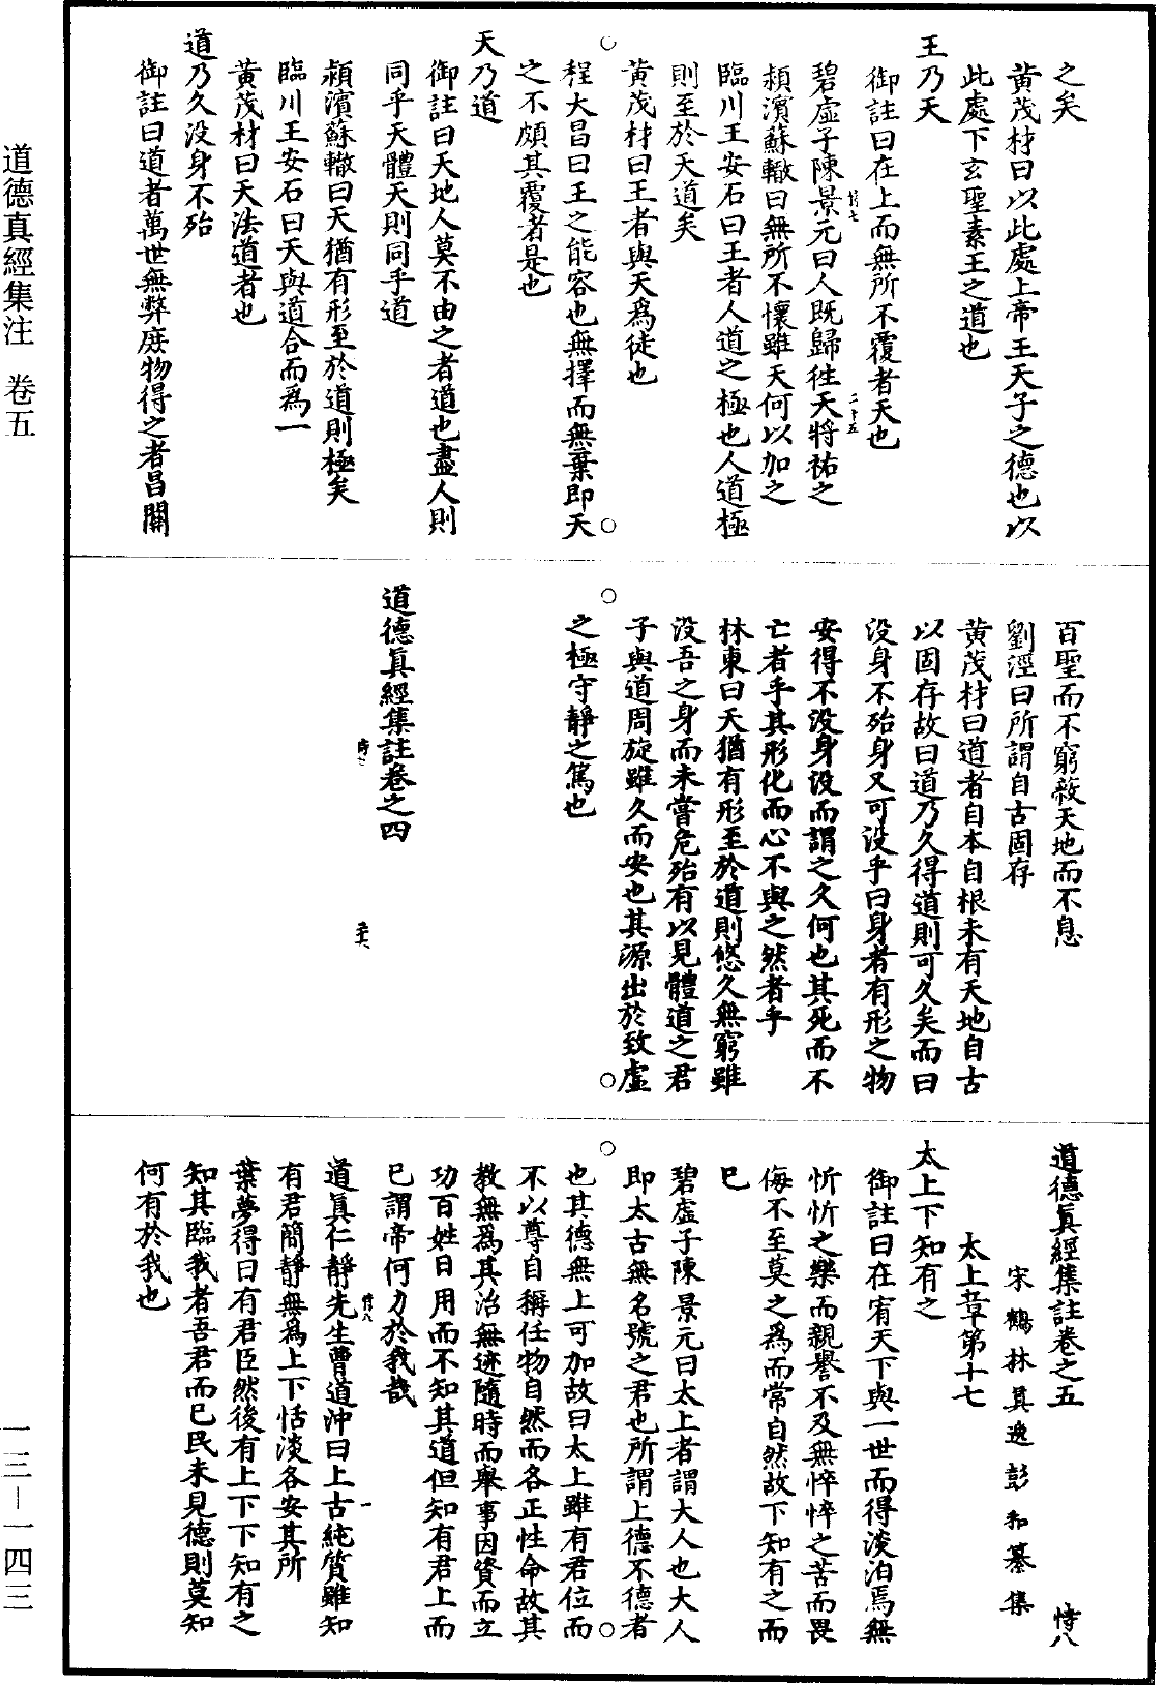 道德真經集注　卷五
之矣
黃茂材曰以此處上帝王天子之德也以
此處下玄聖素王之道也
王乃天
御註曰在上而無所不覆者天也
碧虛子陳景元曰人既歸徃天將祐之
潁濱蘇轍曰無所不懷雖天何以加之
臨川王安石曰王者人道之極也人道極
則至於天道矣
黃茂材曰王者與天爲徒也
程大昌曰王之能容也無擇而無棄即天
之不頗其覆者是也
天乃道
御註曰天地人莫不由之者道也盡人則
同乎天體天則同乎道
潁濱蘇轍曰天猶有形至於道則極矣
臨川王安石曰天與道合而爲一
黃茂材曰天法道者也
道乃久没身不殆
御註曰道者萬世無弊庶物得之者昌關
百聖而不窮敝天地而不息
劉涇曰所謂自古固存
黃茂材曰道者自本自根未有天地自古
以固存故曰道乃久得道則可久矣而曰
没身不殆身又可没乎曰身者有形之物
安得不没身没而謂之久何也其死而不
亡者乎其形化而心不與之然者乎
林東曰天猶有形至於道則悠久無窮雖
没吾之身而未嘗危殆有以見體道之君
子與道周旋雖久而安也其源出於致虛
之極守靜之篤也
道德真經集註卷之四
道德真經集註卷之五　恃八
宋鶴林真逸彭和纂集
太上章第十七
太上下知有之
御註曰在宥天下與一世而得淡泊焉無
忻忻之樂而親譽不及無悴悴之苦而畏
侮不至莫之爲而常自然故下知有之而
已
碧虛子陳景元曰太上者謂大人也大人
即太古無名號之君也所謂上德不德者
也其德無上可加故曰太上雖有君位而
不以尊自稱任物自然而各正性命故其
教無爲其治無迹隨時而舉事因資而立
功百姓日用而不知其道但知有君上而
已謂帝何力於我哉
道真仁靜先生曹道沖曰上古純質雖知
有君簡靜無爲上下恬淡各安其所
葉夢得曰有君臣然後有上下下知有之
知其臨我者吾君而已民未見德則莫知
何有於我也
一三—一四三